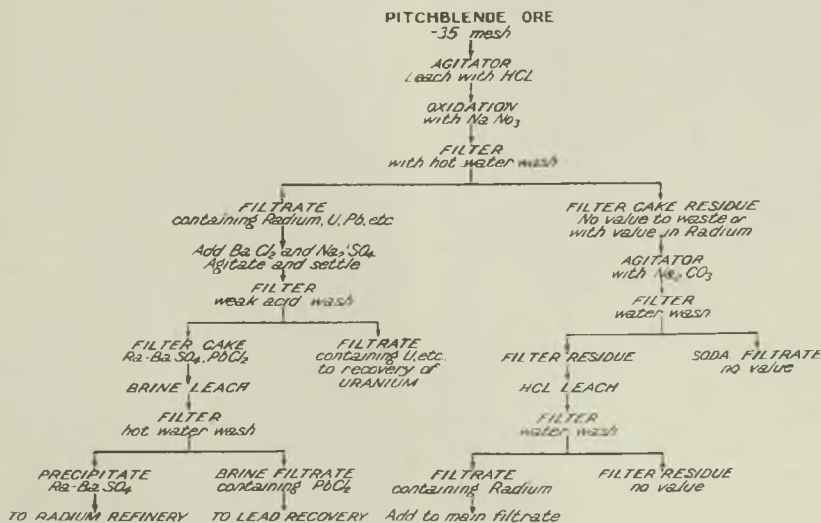 PITCHBLENDE ORE
-35 mesh
AGITATOR
Leach with HCL
OXIDATION
with Na No3
FILTER
with hot water wash
FILTRATE
containing Radium, U, Pb, etc
Add Ba Cl2 and Na2 SO4
Agitate and settle
FILTER
weak acid wash
FILTER CAKE
Ra-Ba SO4, PbCl2
BRINE LEACH
FILTER
hot water wash
PRECIPITATE
Ra-Ba SO4
TO RADIUM REFINERY
BRINE FILTRATE
containing PbCl2
TO LEAD RECOVERY
FILTRATE
containing U, etc.
to recovery of
URANIUM
FILTER CAKE RESIDUE
No value to waste or
with value in Radium
AGITATOR
with Na2 CO3
FILTER
water wash
FILTER RESIDUE
HCL LEACH
FILTER
water wash
FILTRATE
containing Radium
Add to main filtrate
FILTER RESIDUE
no value
SODA FILTRATE
no value